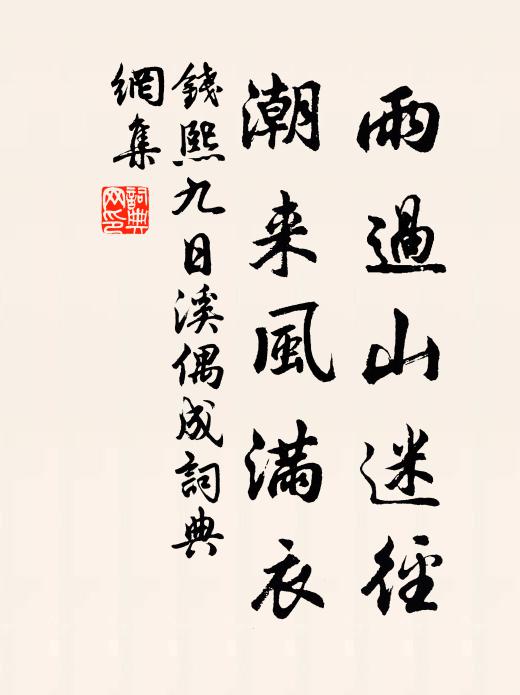 雨過山迷徑
潮来風滿衣
錢熙九日溪偶成詞典
網集
詞典網印